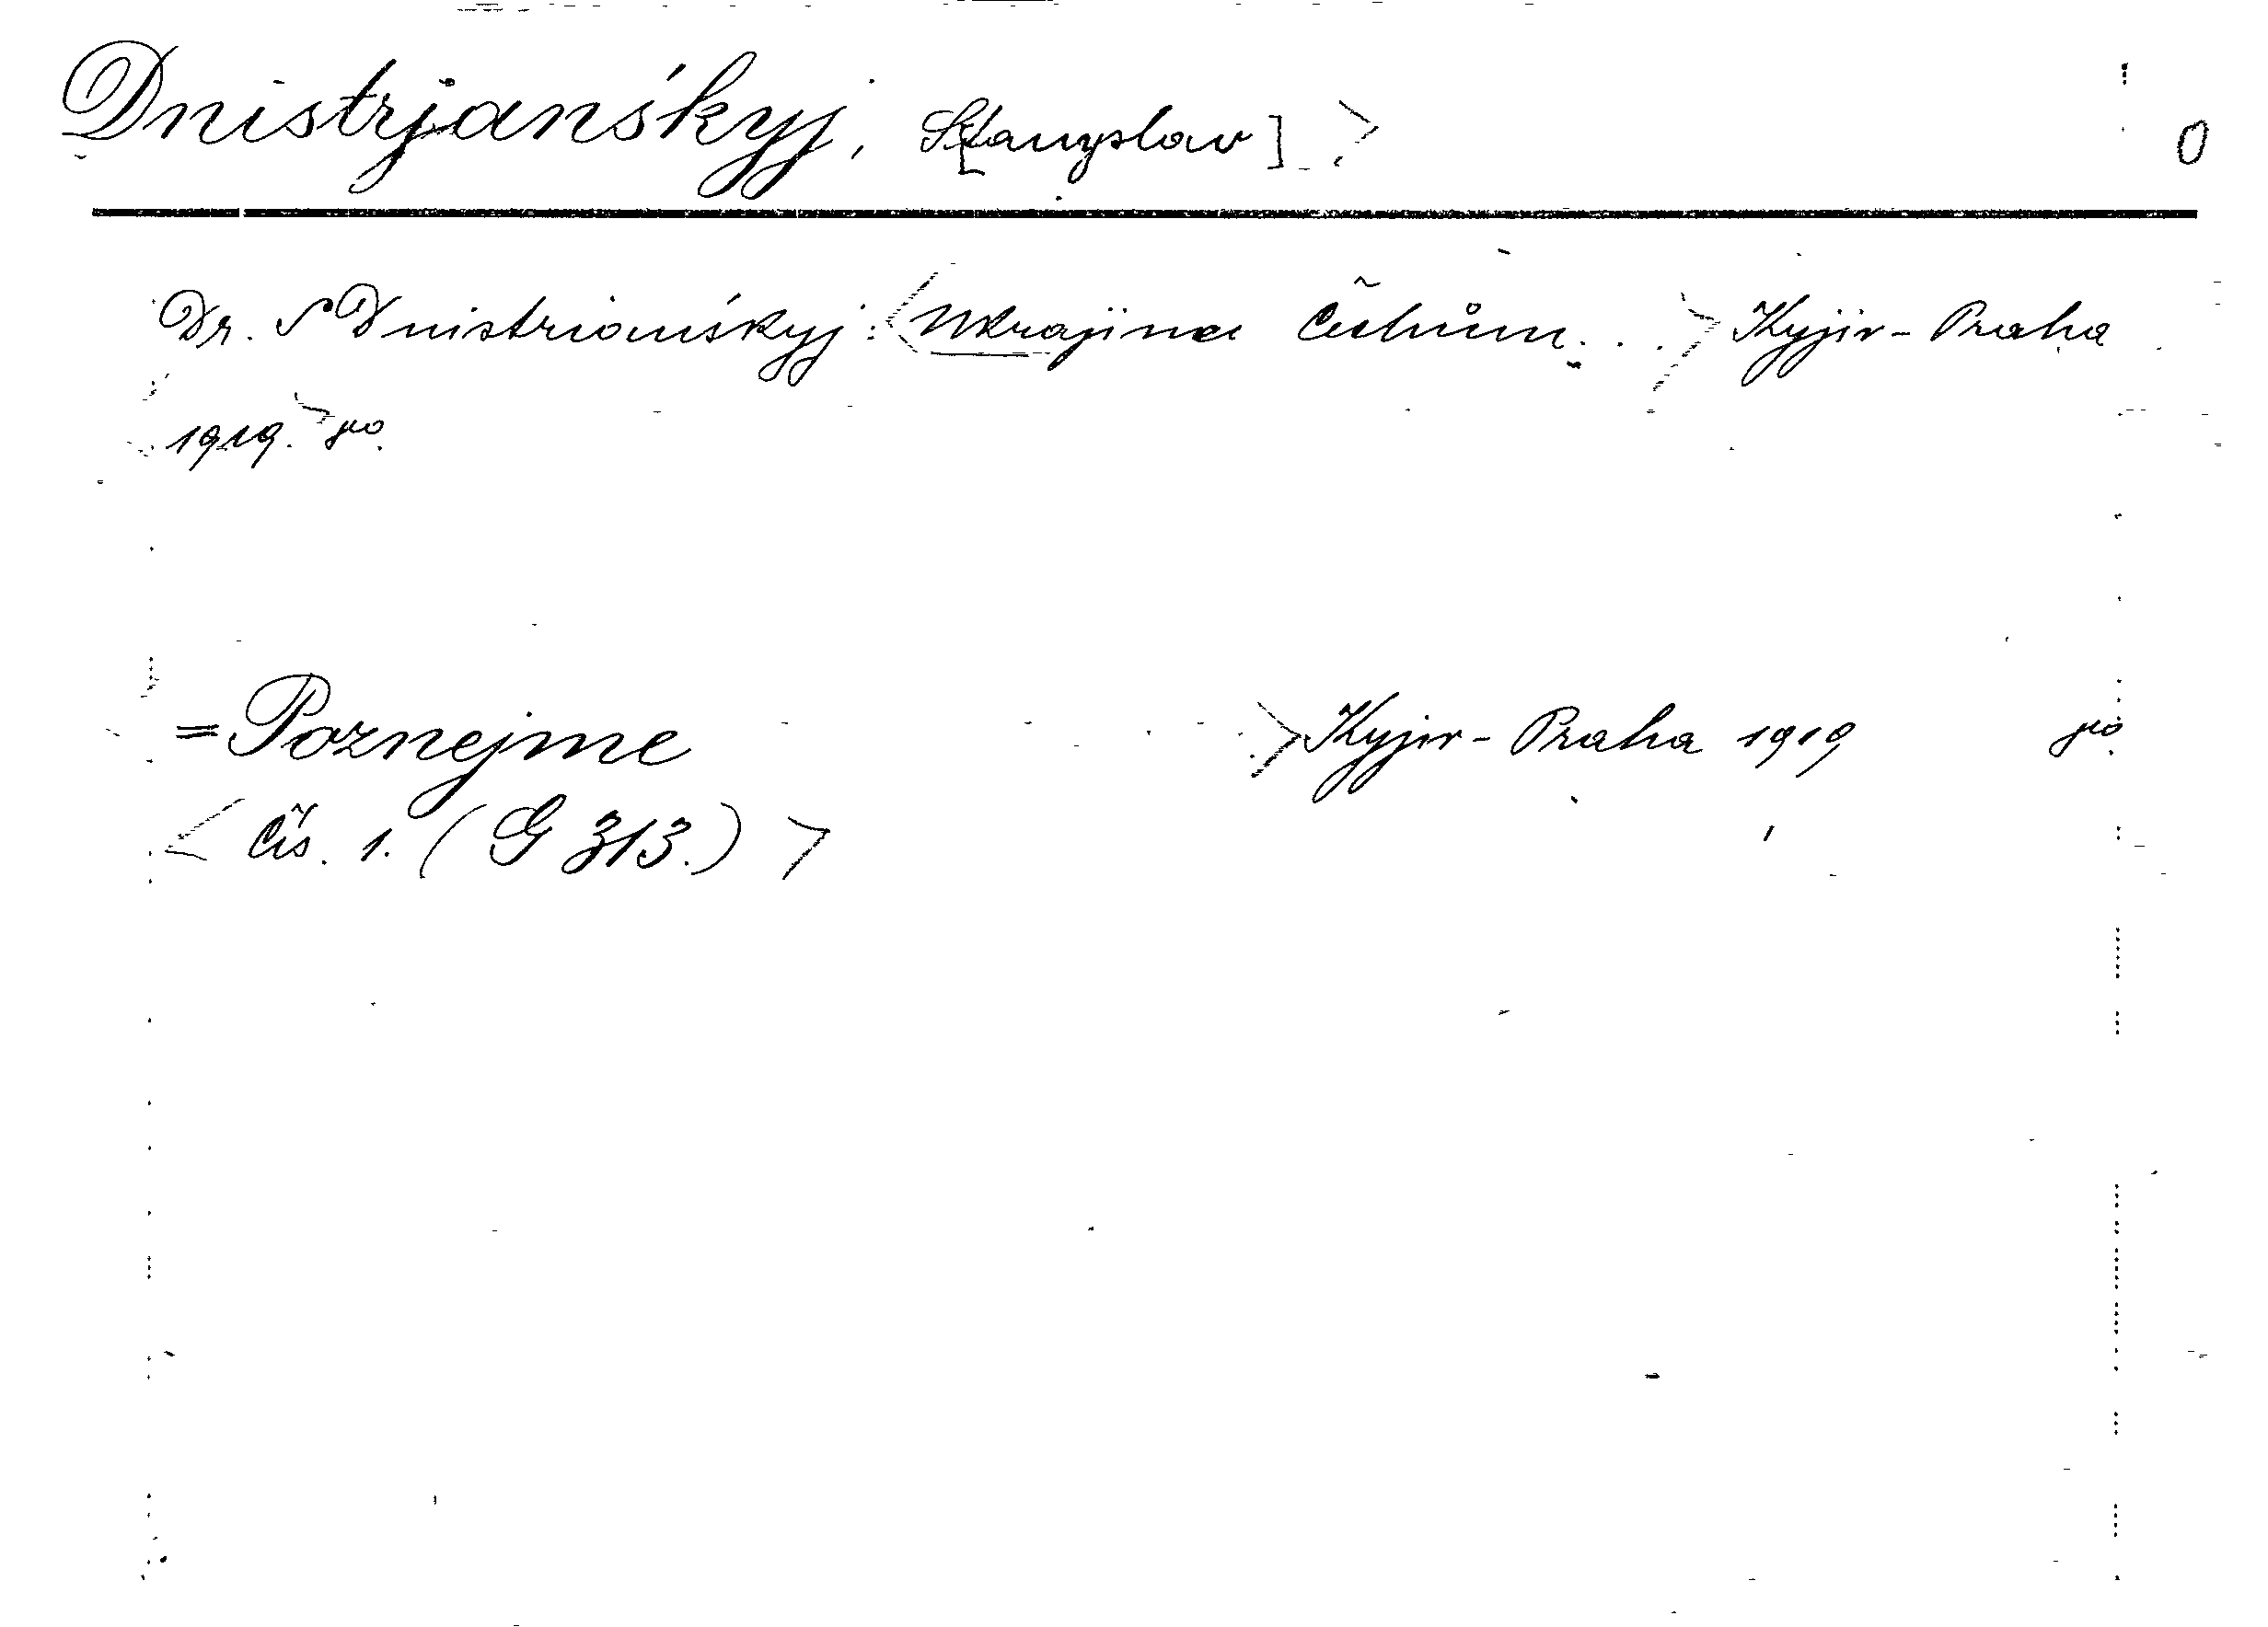 Dnistrjanśkyj, S[tanyslav] > 0
Dr. S Dnistrianśkyj: <Ukrajina Čechům...> Kyjiv-Praha
1919. > 8º.
=Poznejme > Kyjiv-Praha 1919 8º.
< Čís. 1. (G 313.) >